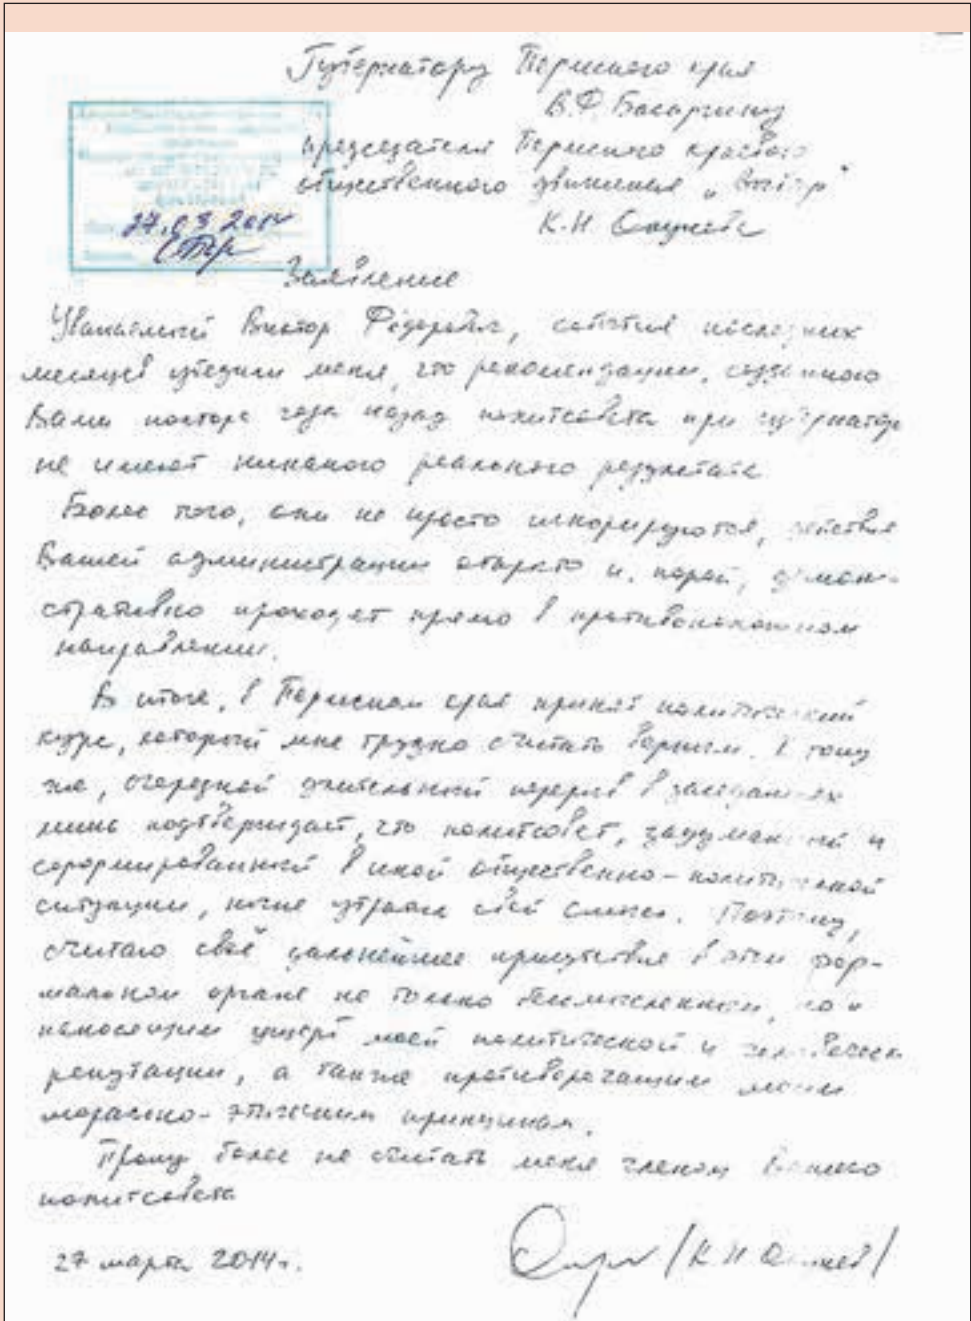 Губернатору Пермского края
В.Ф. Басаргину
председателя Пермского краевого
общественного движения „Выбор"
К.Н. Окунева
27.03 2014
Заявление
Уважаемый Виктор Фёдорович, события последних
месяцев убедили меня, что рекомендации, созданного
Вами полтора года назад политсовета при губернаторе
не имеют никакого реального результата
Более того, они не просто игнорируются, действия
Вашей администрации открыто и, порой, демон-
стративно проходят прямо в противоположном
направлении.
В итоге, в Пермском крае принят политический
курс, который мне трудно считать верным. К тому
же, очередной длительный перерыв в заседаниях
лишь подтверждает, что политсовет, задуманный и
сформированный в иной общественно-политической
ситуации, ныне утратил свой смысл. Поэтому,
считаю своё дальнейшее присутствие в этом фор-
мальном органе не только бессмысленным, но и
наносящим ущерб моей политической и человеческой
репутации, а также противоречащим моим
морально-этическим принципам.
Прошу более не считать меня членом Вашего
политсовета
27 марта 2014г.
/К.Н. Окунев/